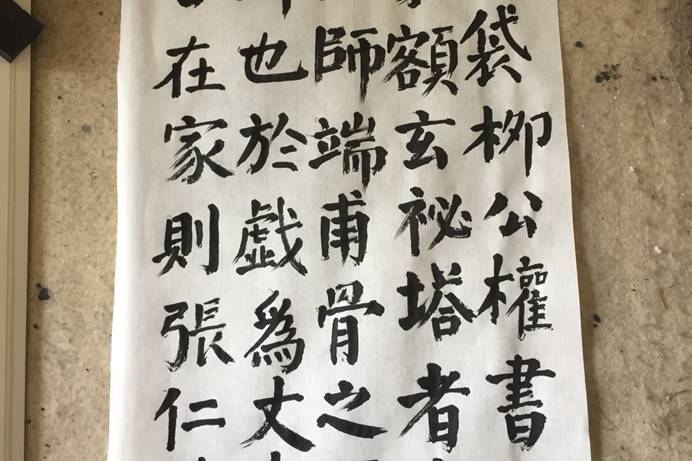 袋柳公權書
額玄祕塔者
師端甫骨之
也於戯為丈
在家則張仁